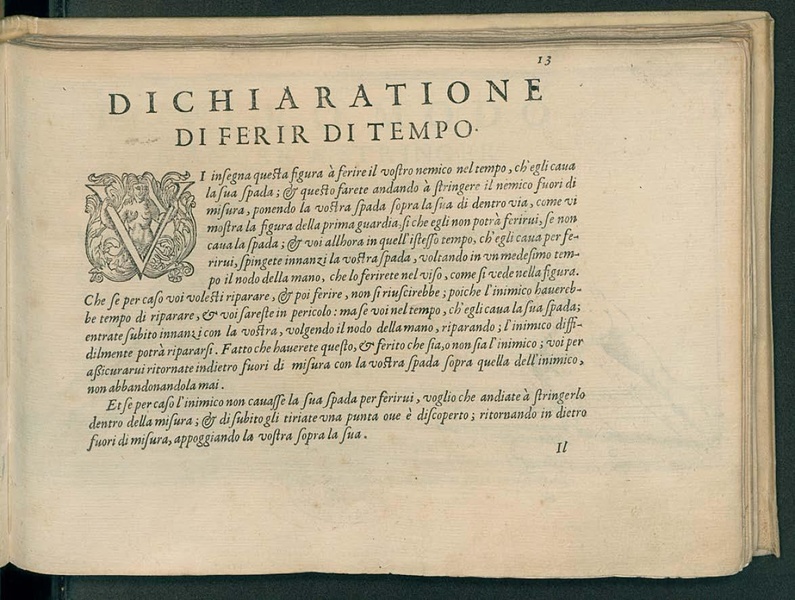 13
DICHIARATIONE
DI FERIR DI TEMPO.
VI insegna questa figura à ferire il vostro nemico nel tempo, ch'egli caua
la sua spada; & questo farete andando à stringere il nemico fuori di
misura, ponendo la vostra spada sopra la sua di dentro via, come vi
mostra la figura della prima guardia, si che egli non potrà ferirui, se non
caua la spada; & voi allhora in quell'istesso tempo, ch'egli caua per fe-
rirui, spingete innanzi la vostra spada, voltando in vn medesimo tem-
po il nodo della mano, che lo ferirete nel viso, come si vede nella figura.
Che se per caso voi volesti riparare, & poi ferire, non si riuscirebbe; poiche l'inimico hauereb-
be tempo di riparare, & voi sareste in pericolo: ma se voi nel tempo, ch'egli caua la sua spada;
entrate subito innanzi con la vostra, volgendo il nodo della mano, riparando; l'inimico diffi-
dilmente potrà ripararsi. Fatto che hauerete questo, & ferito che sia, o non sia l'inimico; voi per
assicurarui ritornate indietro fuori di misura con la vostra spada sopra quella dell'inimico,
non abbandonandola mai.
Et se per caso l'inimico non cauasse la sua spada per ferirui, voglio che andiate à stringerlo
dentro della misura; & di subito gli tiriate vna punta oue è discoperto; ritornando in dietro
fuori di misura, appoggiando la vostra sopra la sua.
Il